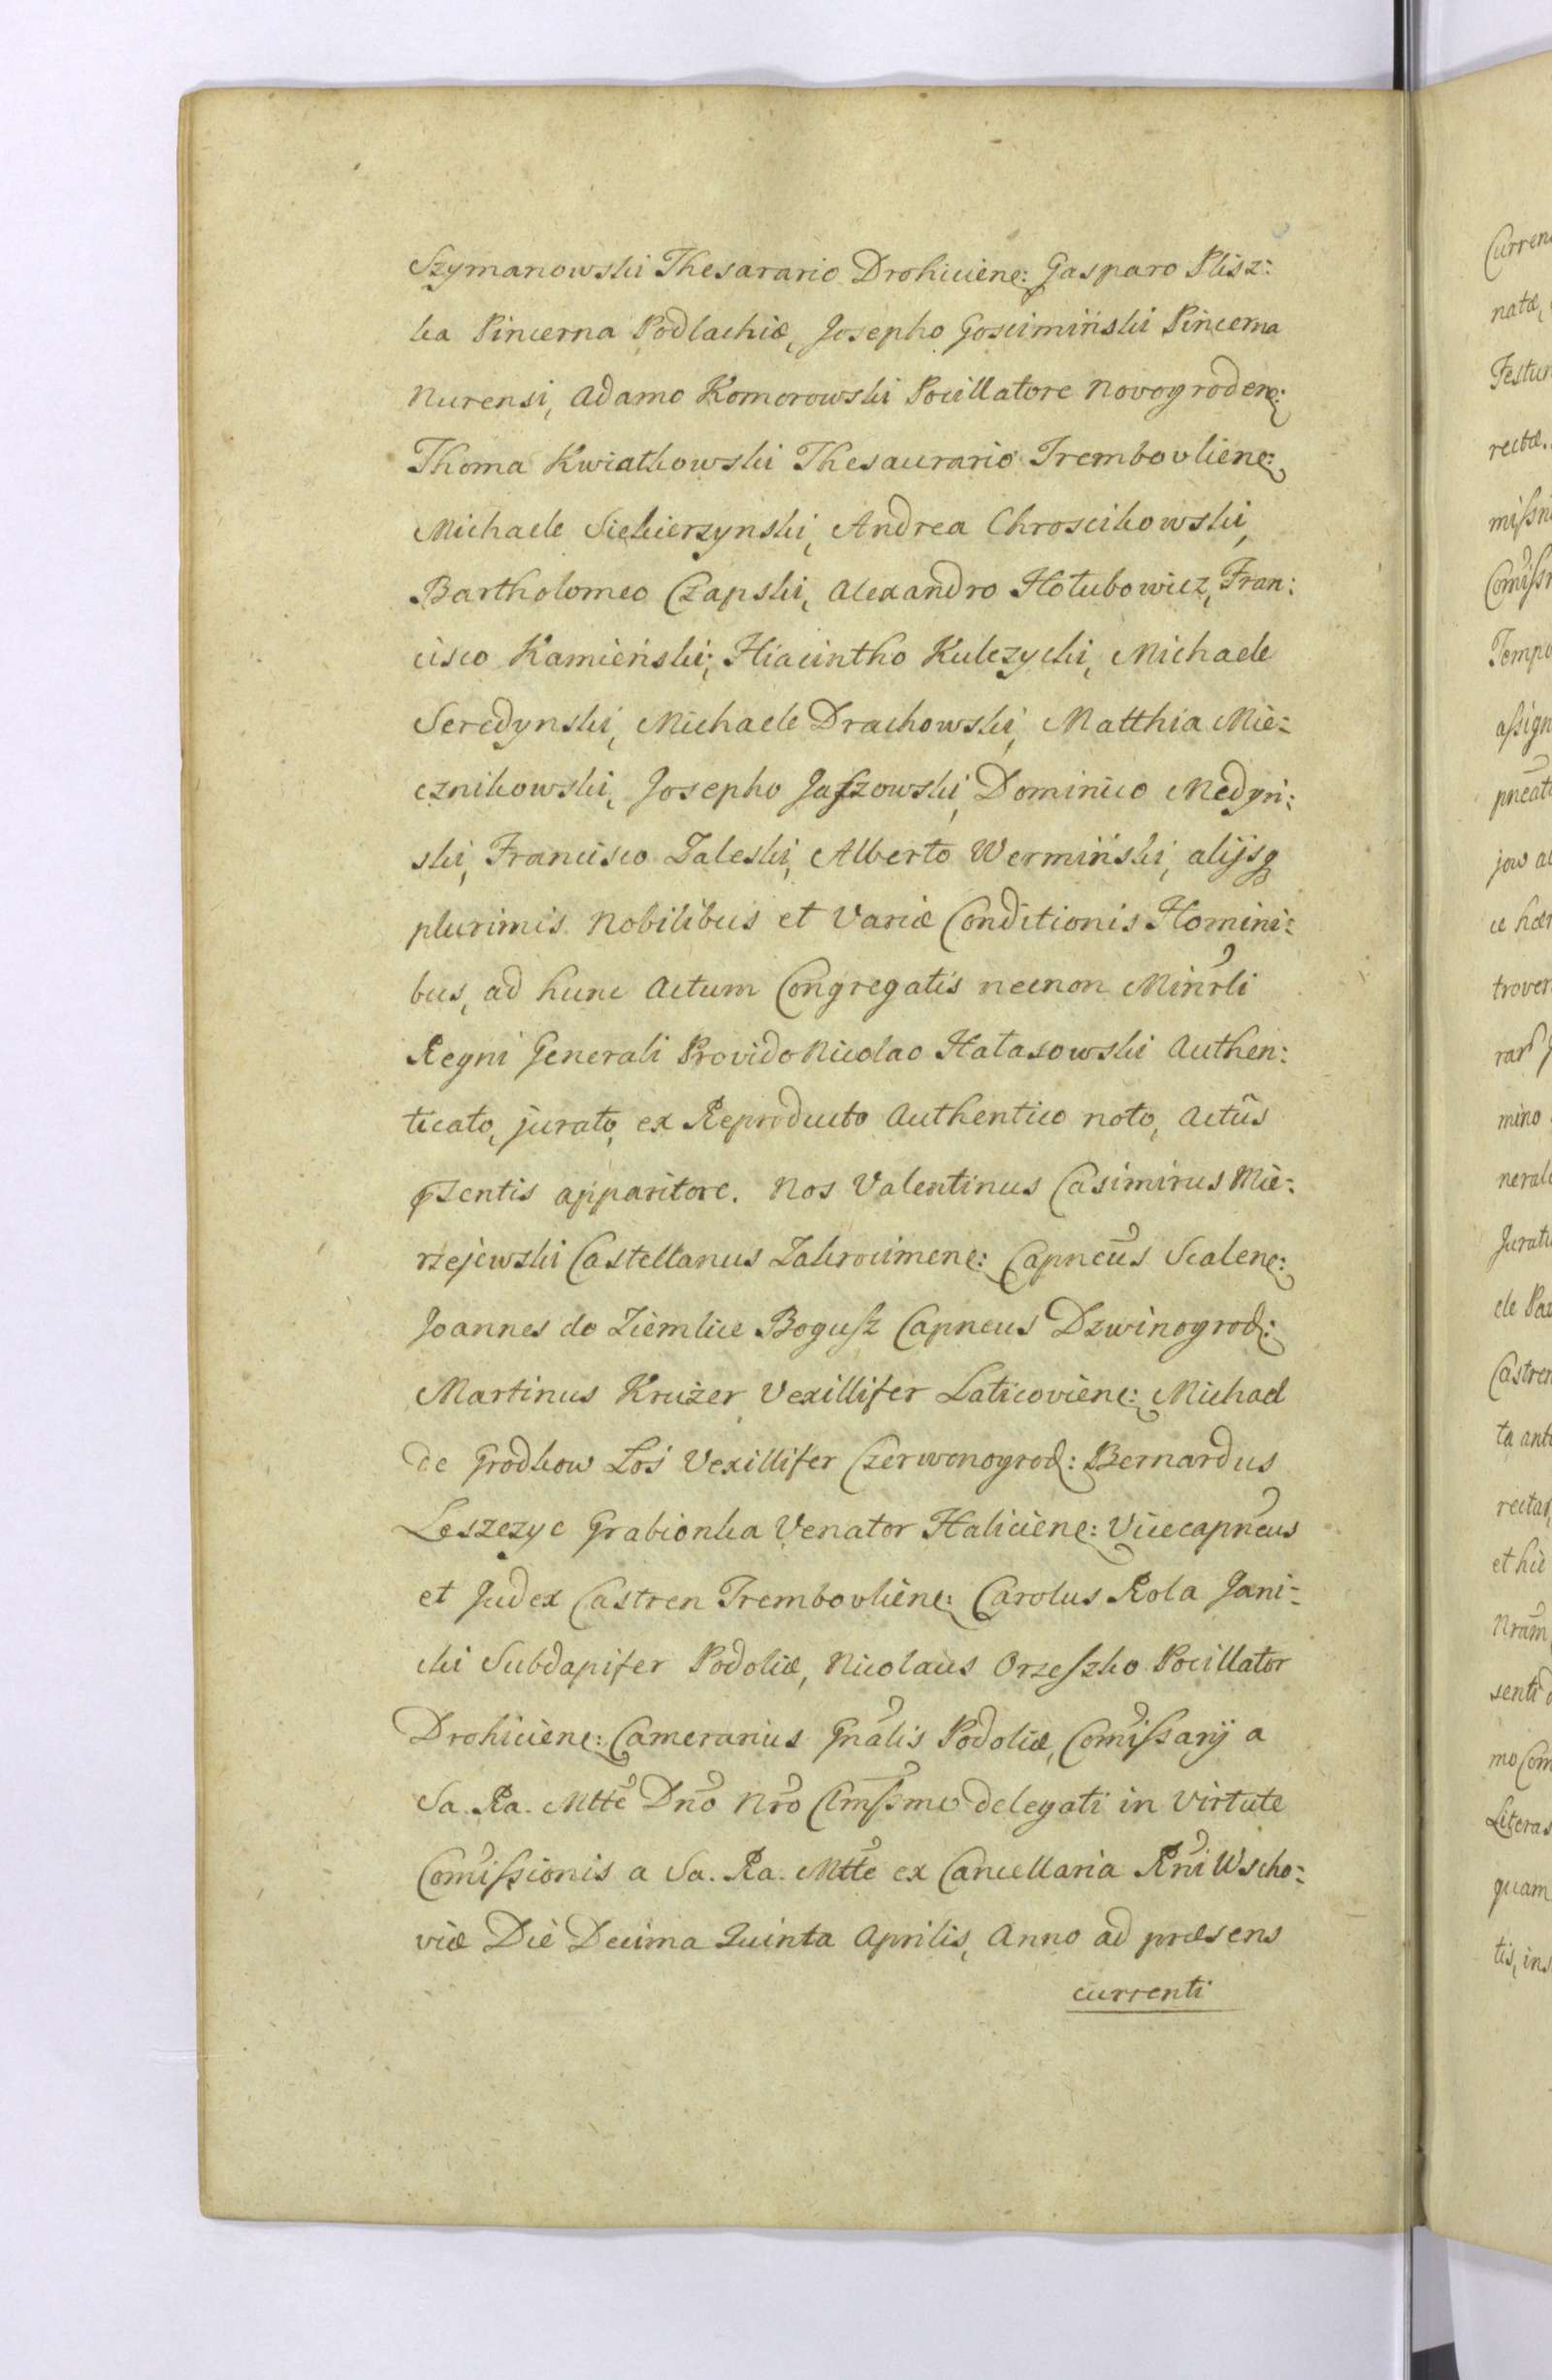 Szymanowski Thesarario Drohiciene: Gasparo Plisz:
ka Pincerna Podlachiæ, Josepho Goscimiński Pincerna
Nurensi, Adamo Komorowski Pocillatore Novogrodene:
Thoma Kwiatkowski Thesaurario Trembovliene:
Michaele Siekierzynski, Andrea Chroscikowski,
Bartholomeo Czapski, Alexandro Hołubowicz, Fran:
cisco Kamieński, Hiacintho Kulczycki, Michaele
Seredynski, Michaele Drachowski, Matthia Mie:
cznikowski, Josepho Jaſzowski, Dominico Medyń:
ski, Francisco Zaleski, Alberto Wermiński, alijsq
plurimis Nobilibus et Variæ Conditionis Homini:
bus, ad hunc Actum Congregatis necnon Minrli
Regni Generali Provido Nicolao Hałasowski Authen:
ticato, jurato, ex Reproducto Authentico noto, Actûs
pzentis apparitore. Nos Valentinus Casimirus Mie:
rzejewski Castellanus Zakrocimene: Capneus Scalene:
Joannes de Ziemlice Boguſz Capneus Dzwinogrod:
Martinus Krużer Vexillifer Laticoviene: Michael
de Grodkow Łoś Vexillifer Czerwonogrod: Bernardus
Leszczyc Grabionka Venator Haliciene: Vicecapneus
et Judex Castren Trembovliene: Carolus Rola Jani:
cki Subdapifer Podoliæ, Nicolaus Orzeſzko Pocillator
Drohiciene: Camerarius Gnalis Podoliæ, Comiſsarij a
Sa. Ra. Mtte Dno Nro Clmſsmo delegati in Virtute
Comiſsionis a Sa. Ra. Mtte ex Cancellaria Rni Wscho:
viæ Die Decima Quinta Aprilis, Anno ad præsens
currenti